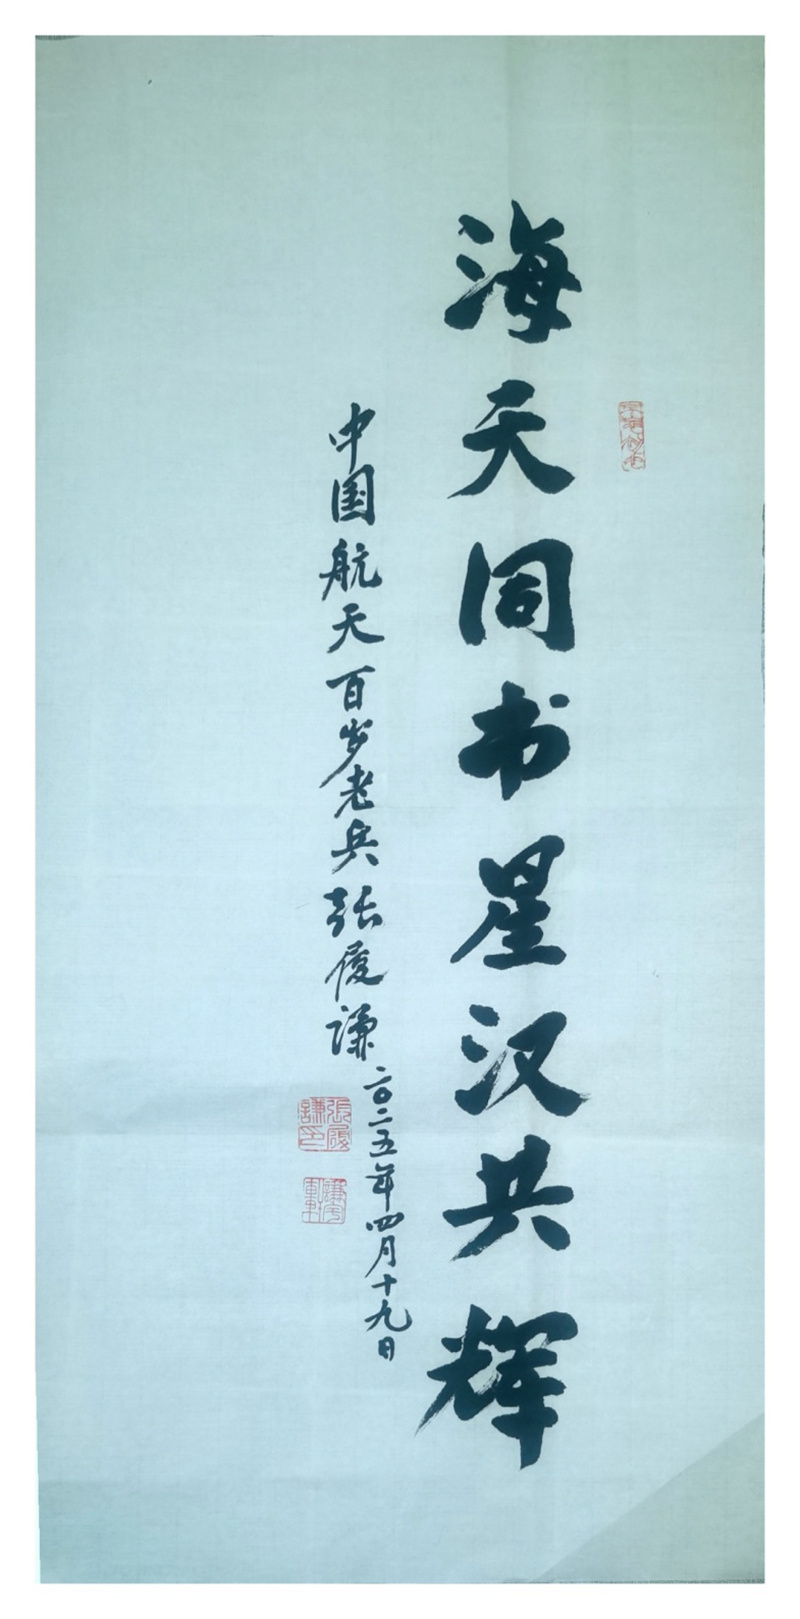 海天同书星汉共辉
中国航天百岁老兵张履谦
二〇二五年四月十九日
張履謙印